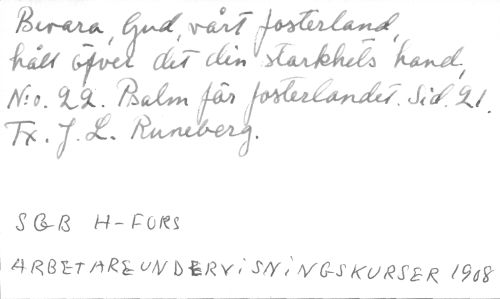 Bevara, Gud, vårt fosterland,
håll öfver det din starkhets hand,
N:o. 22. Psalm för fosterlandet. Sid. 21.
Tx. J. L. Runeberg.
SGB H-FORS
ARBETAREUNDERVISNINGSKURSER 1908